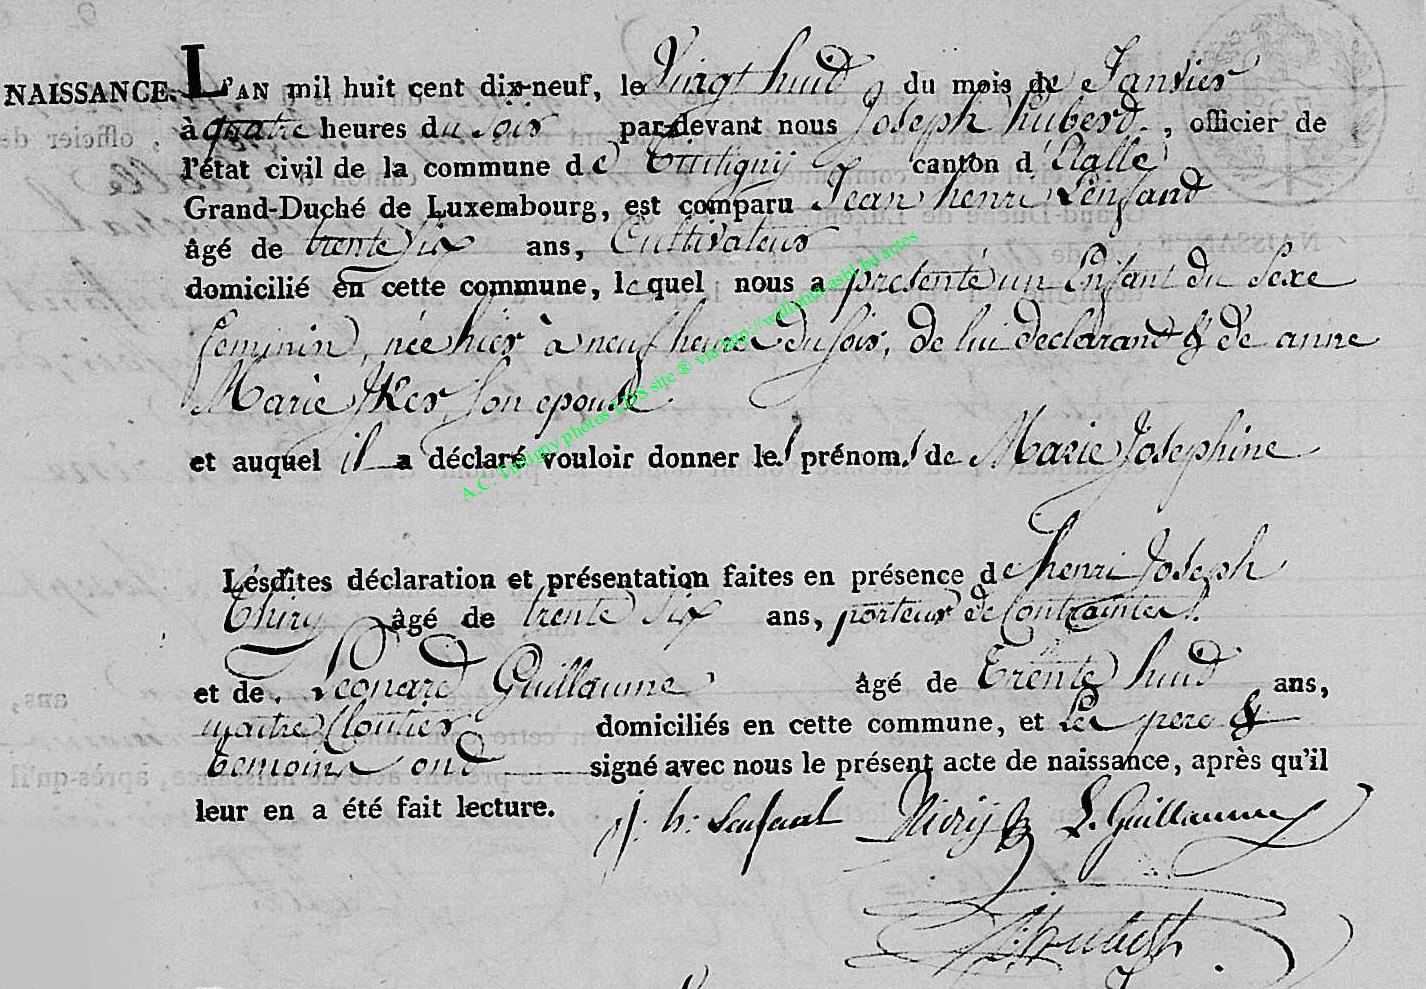 NAISSANCE. L'AN mil huit cent dix-neuf, le Vingt huid du mois de Janvier
à quatre heures du soir par-devant nous Joseph huberd, officier de
l'état civil de la commune de Tintigny canton d'Etalle
Grand-Duché de Luxembourg, est comparu Jean henri Lenfand
âgé de trente six ans, Cultivateur
domicilié en cette commune, lequel nous a presenté un Enfant du Sexe
feminin, née hier à neuf heures du soir, de lui declarant & de anne
Marie son epouse.
et auquel il a déclaré vouloir donner les prénoms de Marie Josephine
A.C. Tintigny photos LDS site ® via http://wallonia-asbl.be actes
Lesdites déclaration et présentation faites en présence de henri Joseph
Thiry âgé de trente six ans, porteur de Contraintes.
et de Leonard Guillaume âgé de Trente huid ans,
maitre Cloutier domiciliés en cette commune, et Les pere &
temoins ond signé avec nous le présent acte de naissance, après qu'il
leur en a été fait lecture.
j. h. Lenfant Thiry L. Guillaume
J. hubert